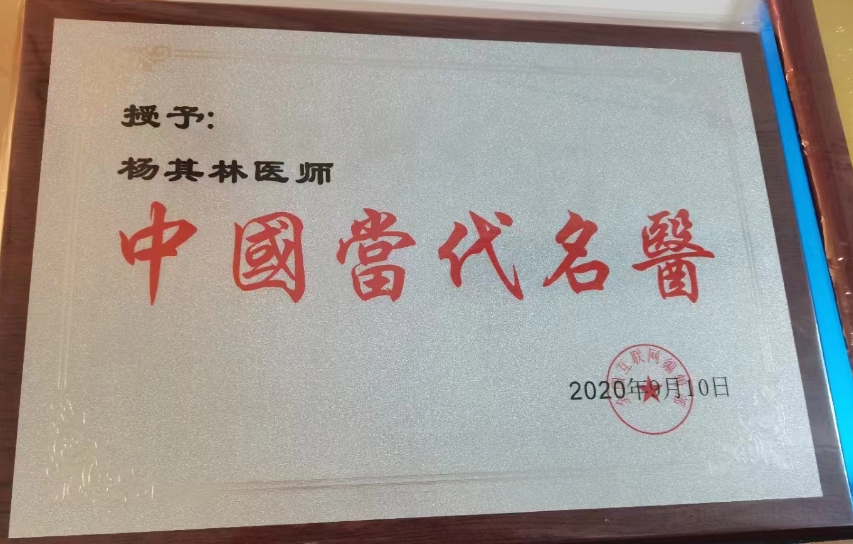 授予:
杨其林医师
中國當代名醫
互联网编
2020年9月10日